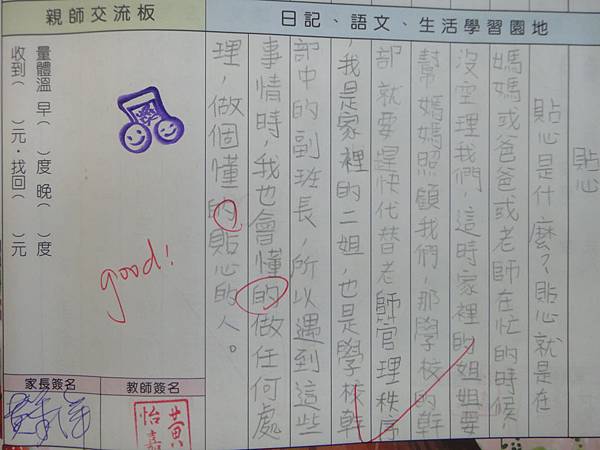 親師交流板
日記、語文、生活學習園地
貼心
貼心是什麼?貼心就是在
媽媽或爸爸或老師在忙的時候,
沒空理我們,這時家裡的姐姐要
幫媽媽照顧我們,那學校的幹
部就要趕快代替老師官理秩序
,我是家裡的二姐,也是學校幹
部中的副班長,所以遇到這些
事情時,我也會懂的做任何處
理,做個懂的貼心的人。
量體溫 早( )度 晚( )度
收到( )元.找回( )元
good!
家長簽名
教師簽名
黃
怡嘉